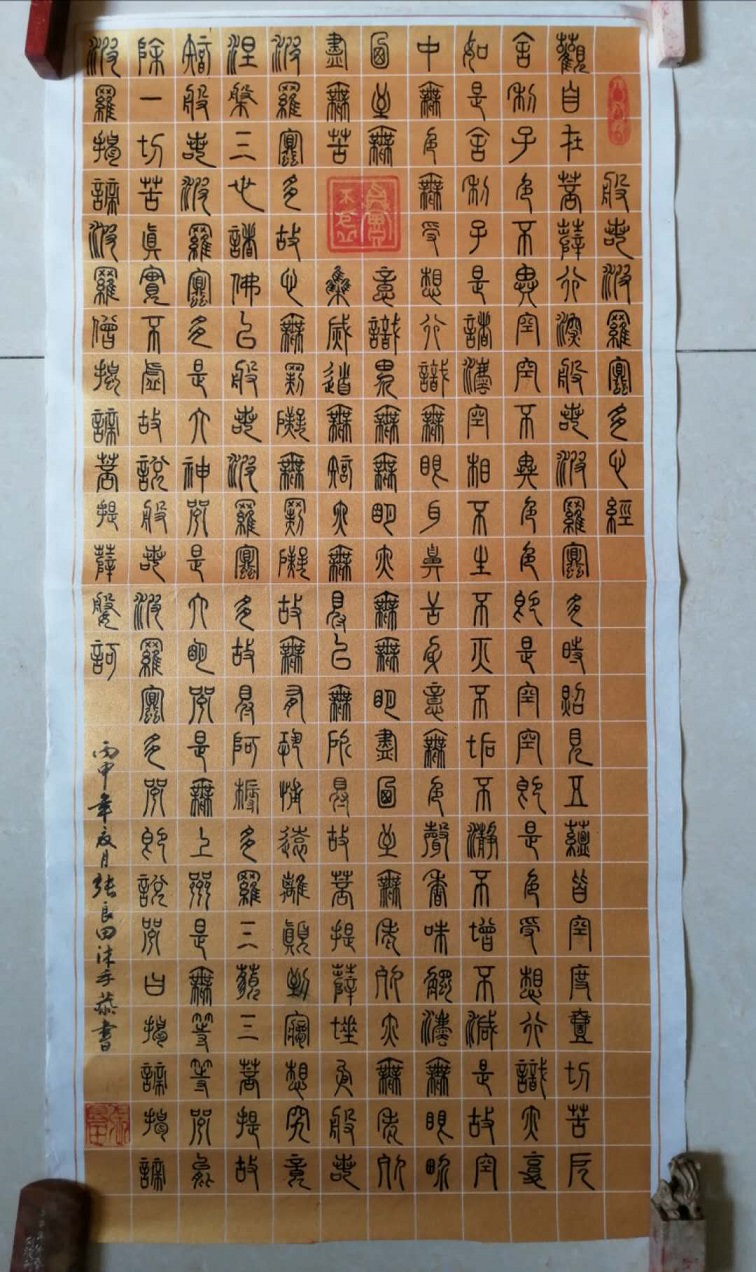 般若波羅蜜多心經
觀自在菩薩行深般若波羅蜜多時照見五蘊皆空度壹切苦厄
舍利子色不異空空不異色色即是空空即是色受想行識亦復
如是舍利子是諸法空相不生不滅不垢不瀞不增不減是故空
中無色無受想行識無眼耳鼻舌身意無色聲香味觸法無眼界
乃至無意識界無無明亦無無明盡乃至無老死亦無老死
盡無苦集滅道無智亦無得以無所得故菩提薩埵依般若
波羅蜜多故心無罣礙無罣礙故無有恐怖遠離顛倒夢想究竟
涅槃三世諸佛以般若波羅蜜多故得阿耨多羅三藐三菩提故
知般若波羅蜜多是大神咒是大明咒是無上咒是無等等咒能
除一切苦眞實不虛故說般若波羅蜜多咒即說咒曰揭諦揭諦
波羅揭諦波羅僧揭諦菩提薩婆訶
丙申年夏月張良田沐手恭書